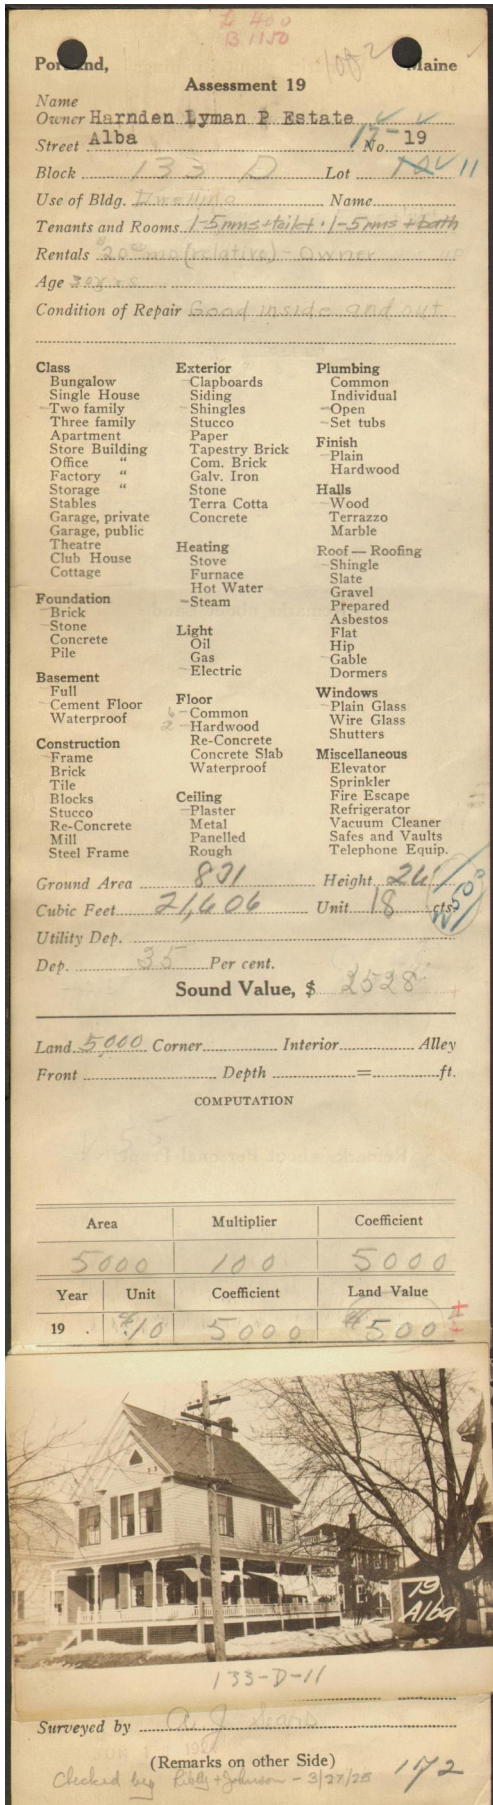 L 400
B 1150
1 of 2
Portland, Maine
Assessment 19
Name
Owner Harnden Lyman P Estate
Street Alba 17- No. 19
Block 133 D Lot 11
Use of Bldg. Dwelling Name
Tenants and Rooms 1-5 rms + toilet · 1-5 rms + bath
Rentals $20 00 mo (relative) - Owner
Age 30 yrs
Condition of Repair Good inside and out
Class
Bungalow
Single House
Two family
Three family
Apartment
Store Building
Office "
Factory "
Storage "
Stables
Garage, private
Garage, public
Theatre
Club House
Cottage
Foundation
Brick
Stone
Concrete
Pile
Basement
Full
Cement Floor
Waterproof
Construction
Frame
Brick
Tile
Blocks
Stucco
Re-Concrete
Mill
Steel Frame
Exterior
Clapboards
Siding
Shingles
Stucco
Paper
Tapestry Brick
Com. Brick
Galv. Iron
Stone
Terra Cotta
Concrete
Heating
Stove
Furnace
Hot Water
Steam
Light
Oil
Gas
Electric
Floor
6 Common
2 Hardwood
Re-Concrete
Concrete Slab
Waterproof
Ceiling
Plaster
Metal
Panelled
Rough
Plumbing
Common
Individual
Open
Set tubs
Finish
Plain
Hardwood
Halls
Wood
Terrazzo
Marble
Roof — Roofing
Shingle
Slate
Gravel
Prepared
Asbestos
Flat
Hip
Gable
Dormers
Windows
Plain Glass
Wire Glass
Shutters
Miscellaneous
Elevator
Sprinkler
Fire Escape
Refrigerator
Vacuum Cleaner
Safes and Vaults
Telephone Equip.
Ground Area 831 Height 26
Cubic Feet 21,606 Unit 18 cts.
Utility Dep.
Dep. 35 Per cent.
Sound Value, $ 2528
Land 5,000 Corner Interior Alley
Front Depth = ft.
COMPUTATION
Area Multiplier Coefficient
5000 100 5000
Year Unit Coefficient Land Value
19 . $.10 5000 $500
19
Alba
133-D-11
Surveyed by A. J.
(Remarks on other Side)
Checked by Libby + Johnson - 3/27/25 172